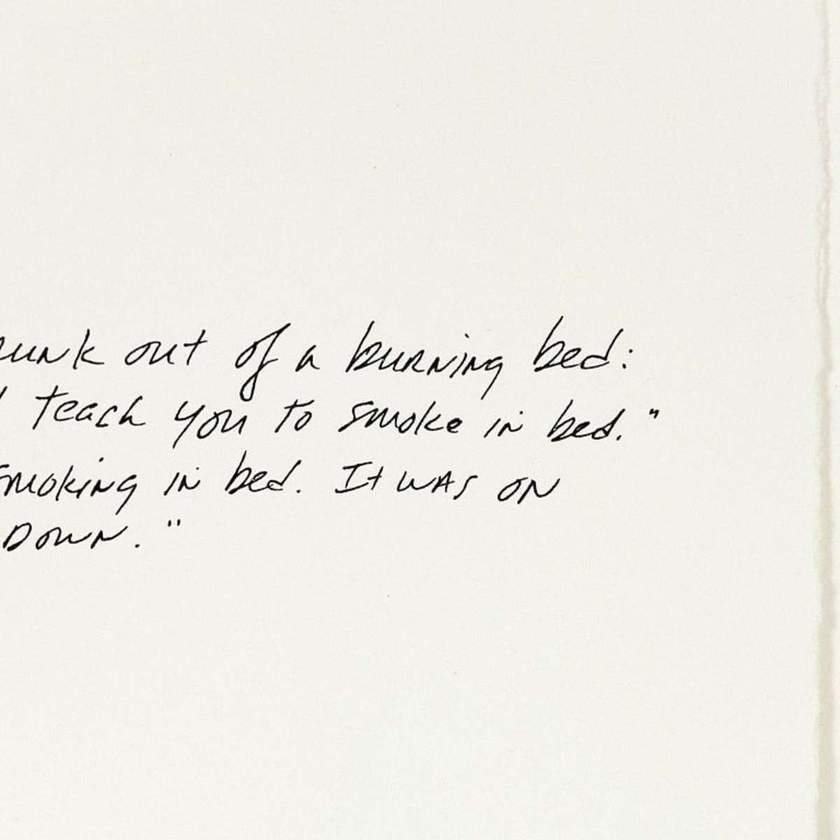 unk out of a burning bed:
teach you to smoke in bed."
smoking in bed. It was on
Down."